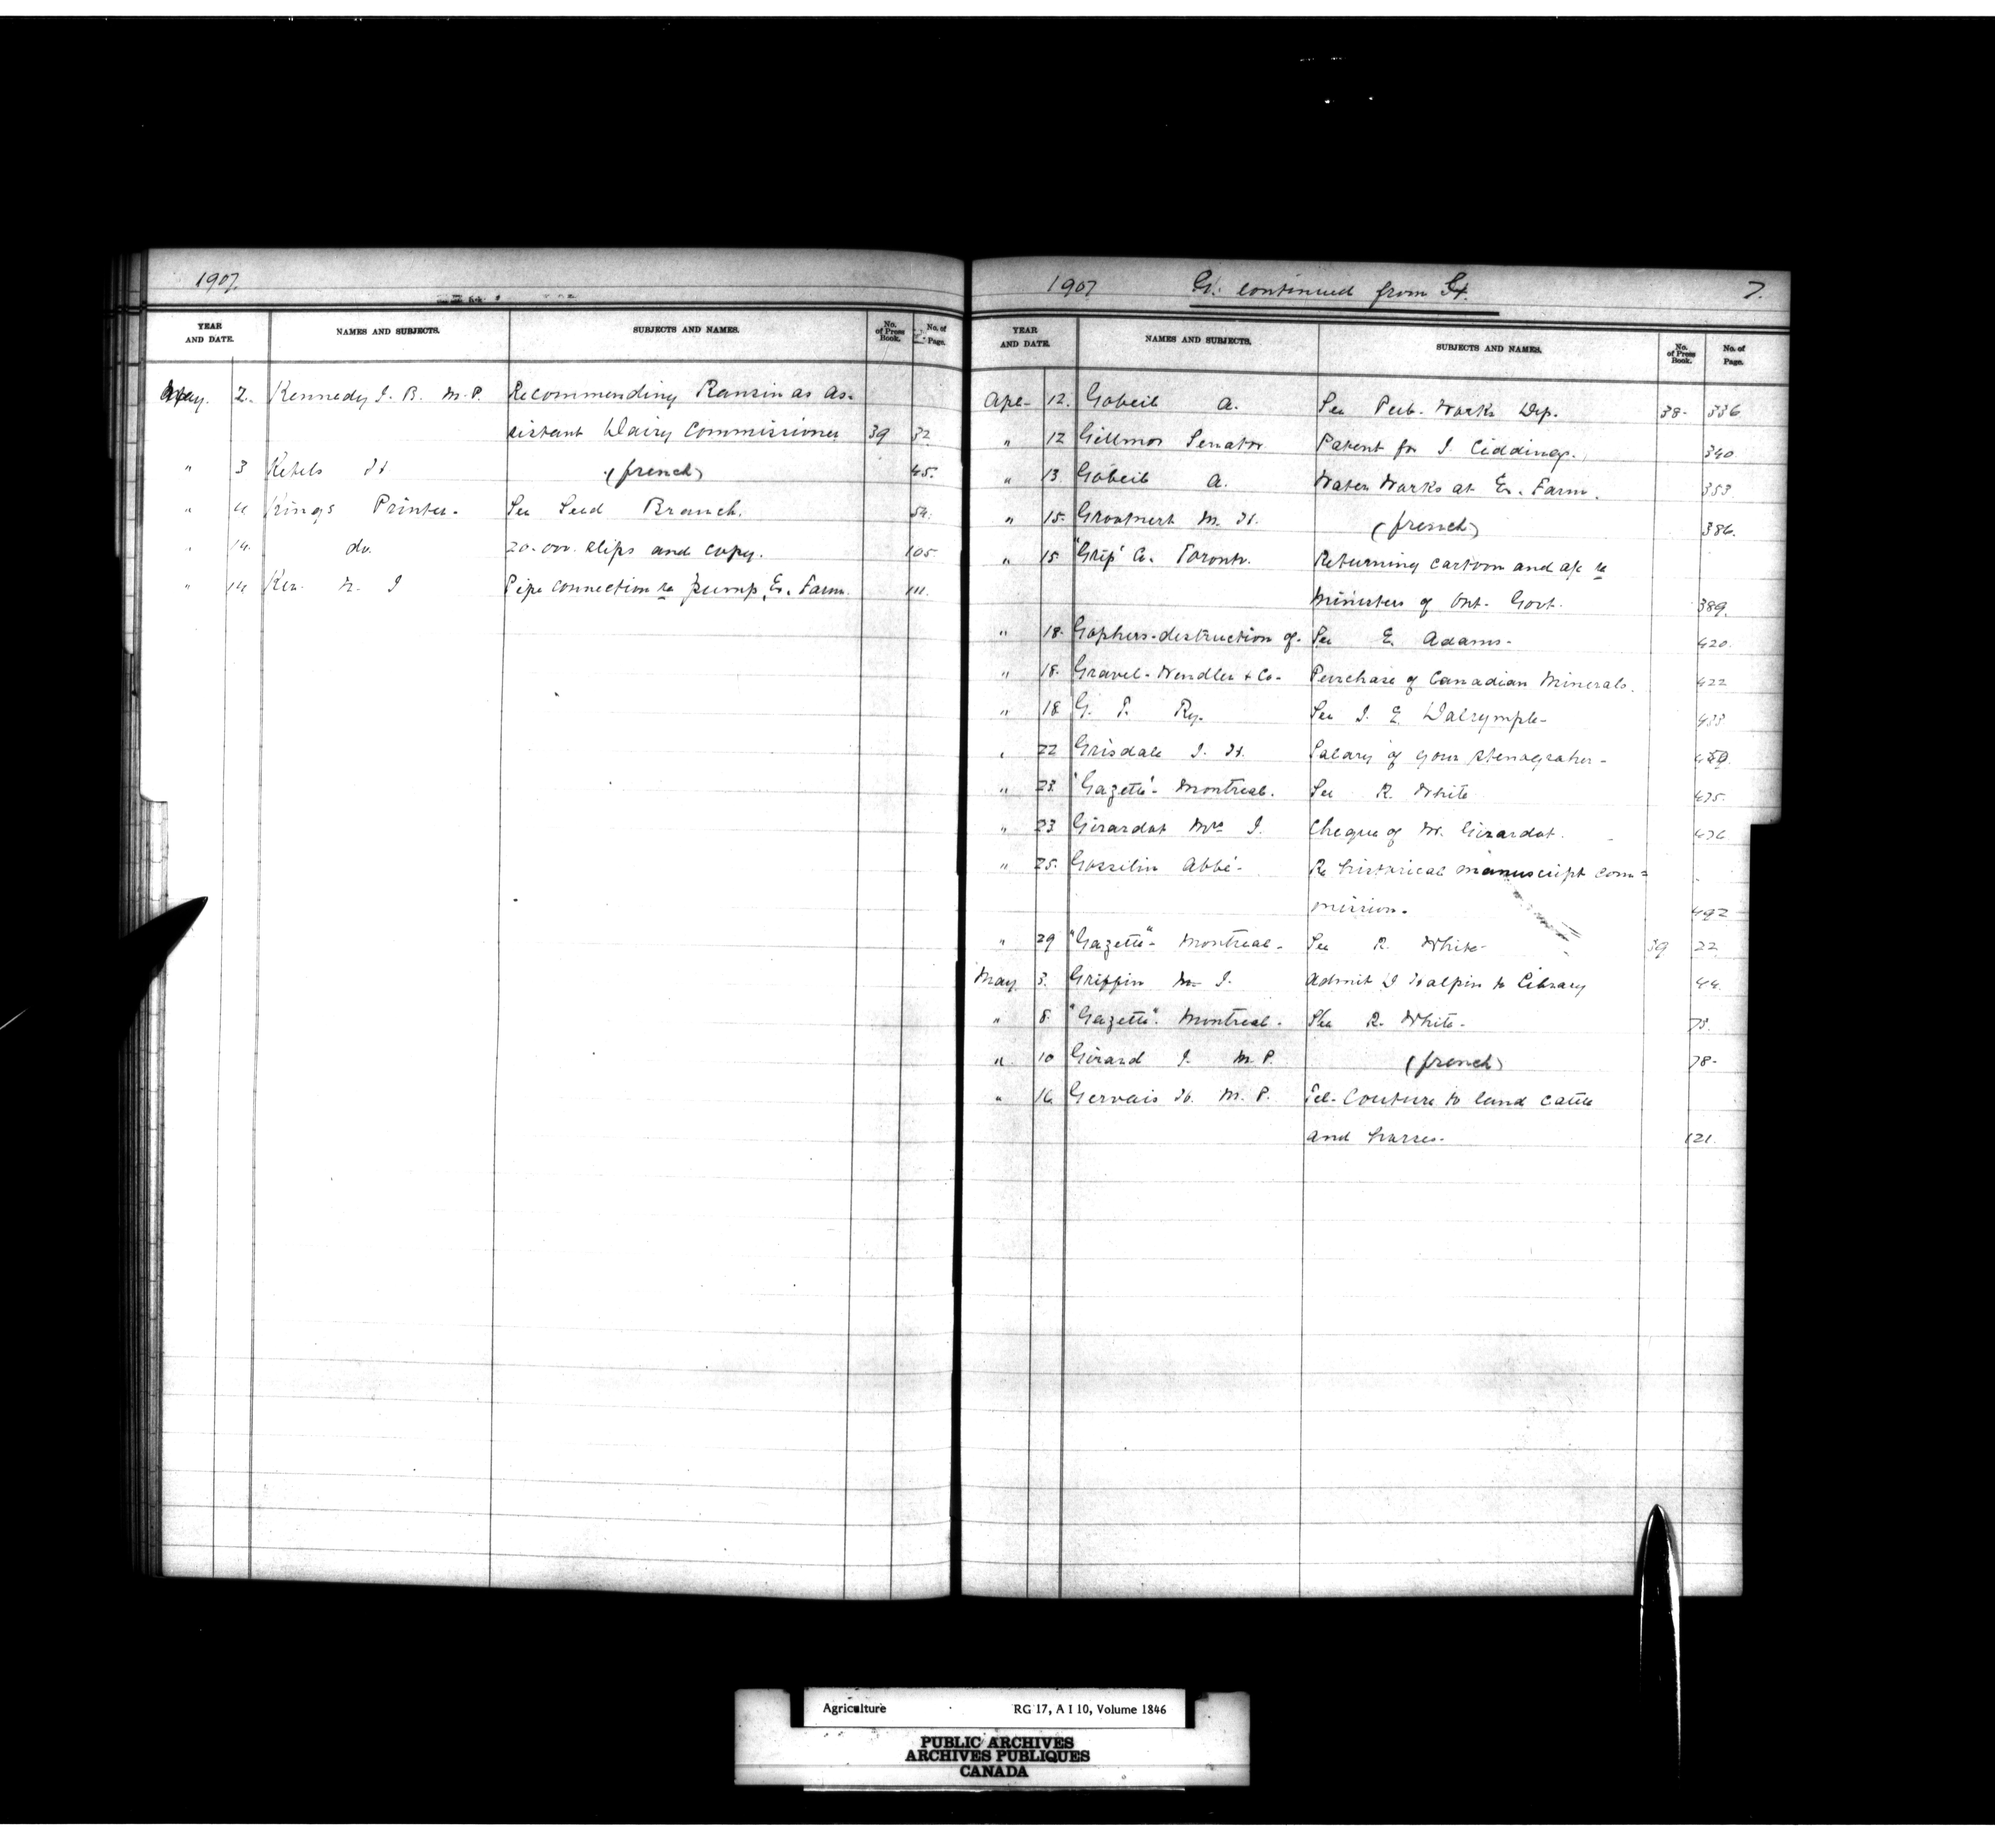 1907.
YEAR AND DATE. NAMES AND SUBJECTS. SUBJECTS AND NAMES. No. of Press Book. No. of Page.
May. 2. Kennedy J. B. M.P. Recommending as as-
sistant Dairy Commissioner 39 32
" 3 Ketels H (french) 45.
" 4 Kings Printer. See Seed Branch. 54.
" 14. do. 20.000. slips and copy. 105
" 14 Ker. N. J Pipe connection re pump, Ex. Farm. 111.
1907 G. continued from 7.
YEAR AND DATE. NAMES AND SUBJECTS. SUBJECTS AND NAMES. No. of Press Book. No. of Page.
Apl- 12. Gobeil A. See Pub. Works Dep. 38- 336
" 12 Gillmor Senator Patent for J. Giddings. 340
" 13. Gobeil A. Water Works at Ex. Farm. 353.
" 15. M. H. (french) 386.
" 15. "Grip" Co. Toronto. Returning cartoon and ap re
Ministers of Ont. Govt. 389.
" 18. Gophers-destruction of. See E. Adams- 420.
" 18. Gravel-Wendler & Co- Purchase of Canadian Minerals. 422
" 18 G. T. Ry. See J. E. Dalrymple- 433
" 22 Grisdale J. H. Salary of your stenographer-
" 23. 'Gazette'- Montreal. See R. White 475.
" 23 Girardot Mrs J. Cheque of M. Girardot. 476
" 25. Gosselin Abbé- Re historical manuscript com=
mission. 492
" 29 "Gazette"- Montreal- See R. White- 39 22
May. 3. Griffin M. J. Admit J Halpin to Library 44.
" 8. "Gazette". Montreal. See R. White- 75.
" 10 Girard J. M.P. (french) 78-
" 16. Gervais H. M. P. Tel- Couture to land cattle
and horses. 121.
Agriculture RG 17, A I 10, Volume 1846
PUBLIC ARCHIVES
ARCHIVES PUBLIQUES
CANADA